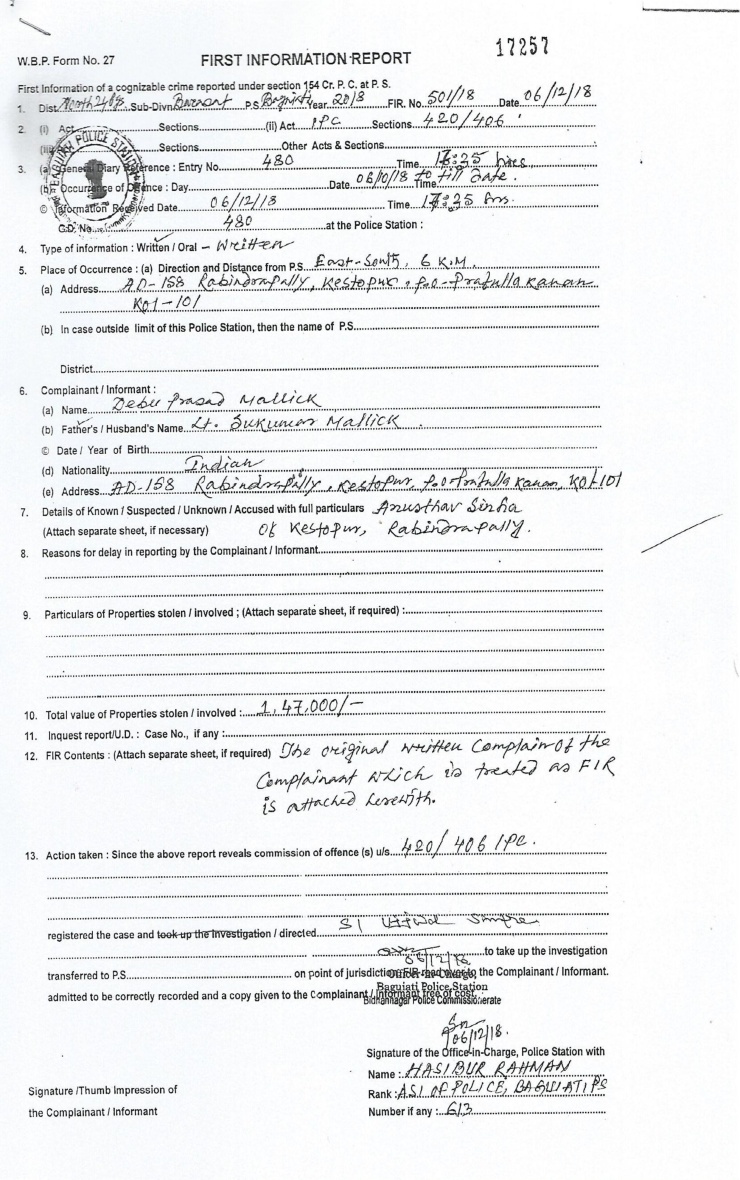 17257
W.B.P. Form No. 27 FIRST INFORMATION REPORT
First Information of a cognizable crime reported under section 154 Cr. P. C. at P. S.
1. Dist. North 24 Pgs Sub-Divn. Barasat P.S. Baguiati Year 2018 FIR. No. 501/18 Date 06/12/18
2. (i) Act Sections (ii) Act IPC Sections 420/406
(iii) Sections Other Acts & Sections
3. (a) General Diary Reference : Entry No. 480 Time 17:25 hrs
(b) Occurrence of Offence : Day Date 06/10/18 to till date. Time
© Information Received Date 06/12/18 Time 17:25 hrs.
G.D. No. 480 at the Police Station :
4. Type of information : Written / Oral - Written
5. Place of Occurrence : (a) Direction and Distance from P.S. East-South, 6 K.M.
(a) Address AD-158 Rabindrapally, Kestopur, P.O-Prafulla Kanan
Kol-101
(b) In case outside limit of this Police Station, then the name of P.S.
District
6. Complainant / Informant :
(a) Name Debu Prasad Mallick
(b) Father's / Husband's Name Lt. Sukumar Mallick
© Date / Year of Birth
(d) Nationality Indian
(e) Address AD-158 Rabindrapally, Kestopur, P.O Prafulla Kanan, Kol-101
7. Details of Known / Suspected / Unknown / Accused with full particulars Anusthav Sinha
(Attach separate sheet, if necessary) Of Kestopur, Rabindrapally.
8. Reasons for delay in reporting by the Complainant / Informant
9. Particulars of Properties stolen / involved ; (Attach separate sheet, if required) :
10. Total value of Properties stolen / involved : 1,47,000/-
11. Inquest report/U.D. : Case No., if any :
12. FIR Contents : (Attach separate sheet, if required) The original written Complain of the
Complainant which is treated as FIR
is attached herewith.
13. Action taken : Since the above report reveals commission of offence (s) u/s 420/406 IPC.
registered the case and took up the investigation / directed SI
to take up the investigation
06/12/18
transferred to P.S. on point of jurisdiction FIR read over to the Complainant / Informant.
Officer-in-Charge
Baguiati Police Station
admitted to be correctly recorded and a copy given to the Complainant / Informant free of cost.
Bidhannagar Police Commissionerate
06/12/18.
Signature of the Office-in-Charge, Police Station with
Name : HASIBUR RAHMAN
Signature /Thumb Impression of Rank : ASI OF POLICE, BAGUIATI PS
the Complainant / Informant Number if any : 613